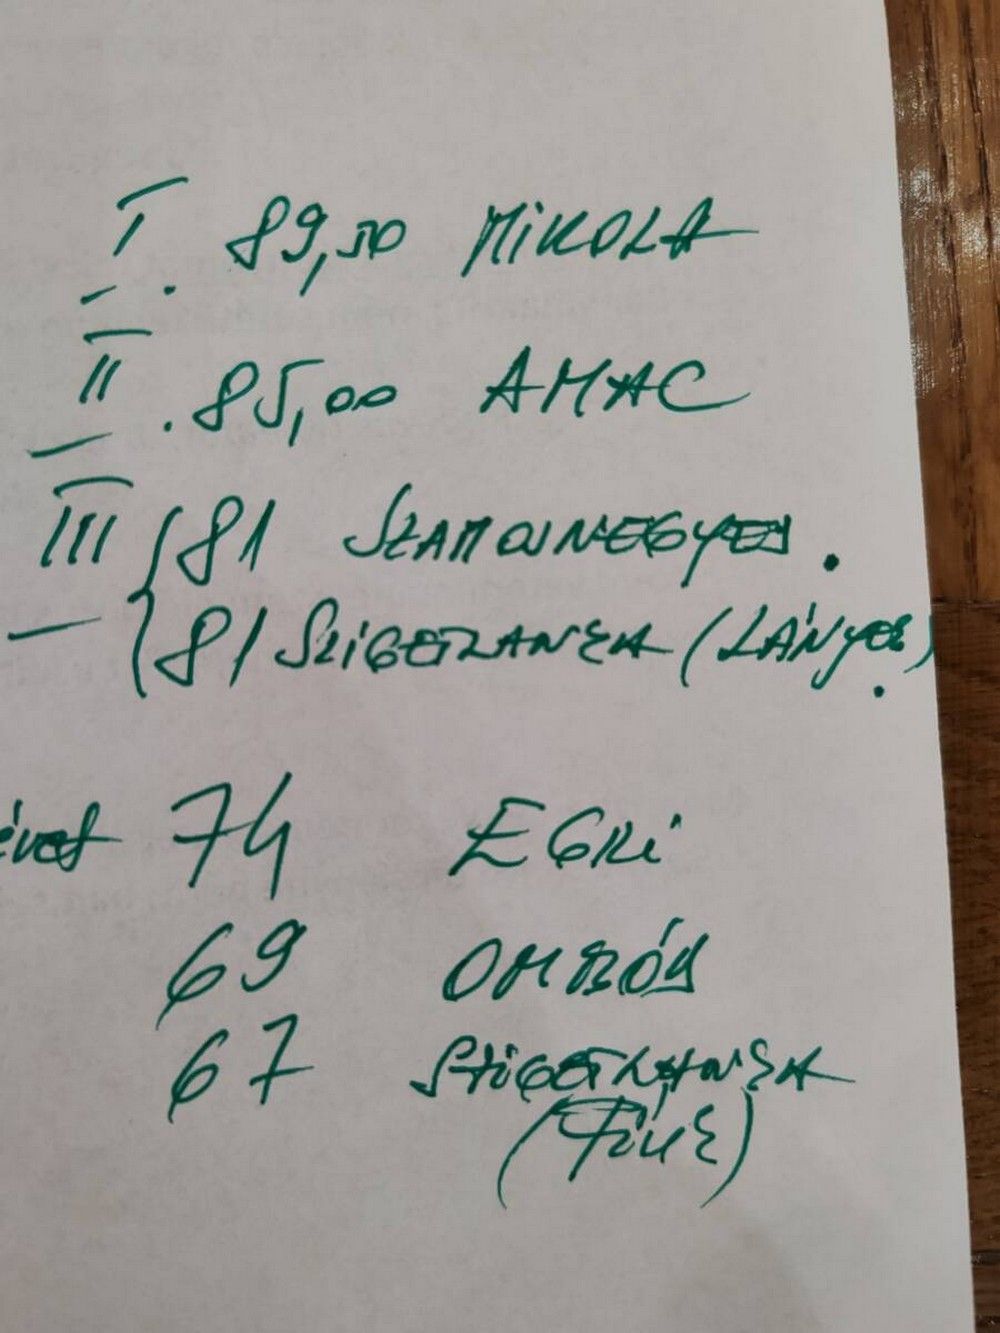 I. 89,50 MIKOLA
II. 85,00 AMAC
III 81 SZAMOSNEGYED.
81 SZIGETLANKA (LÁNYOK).
74 EGRI
69 OMBÓD
67 SZIGETLANKA
(FIÚK)